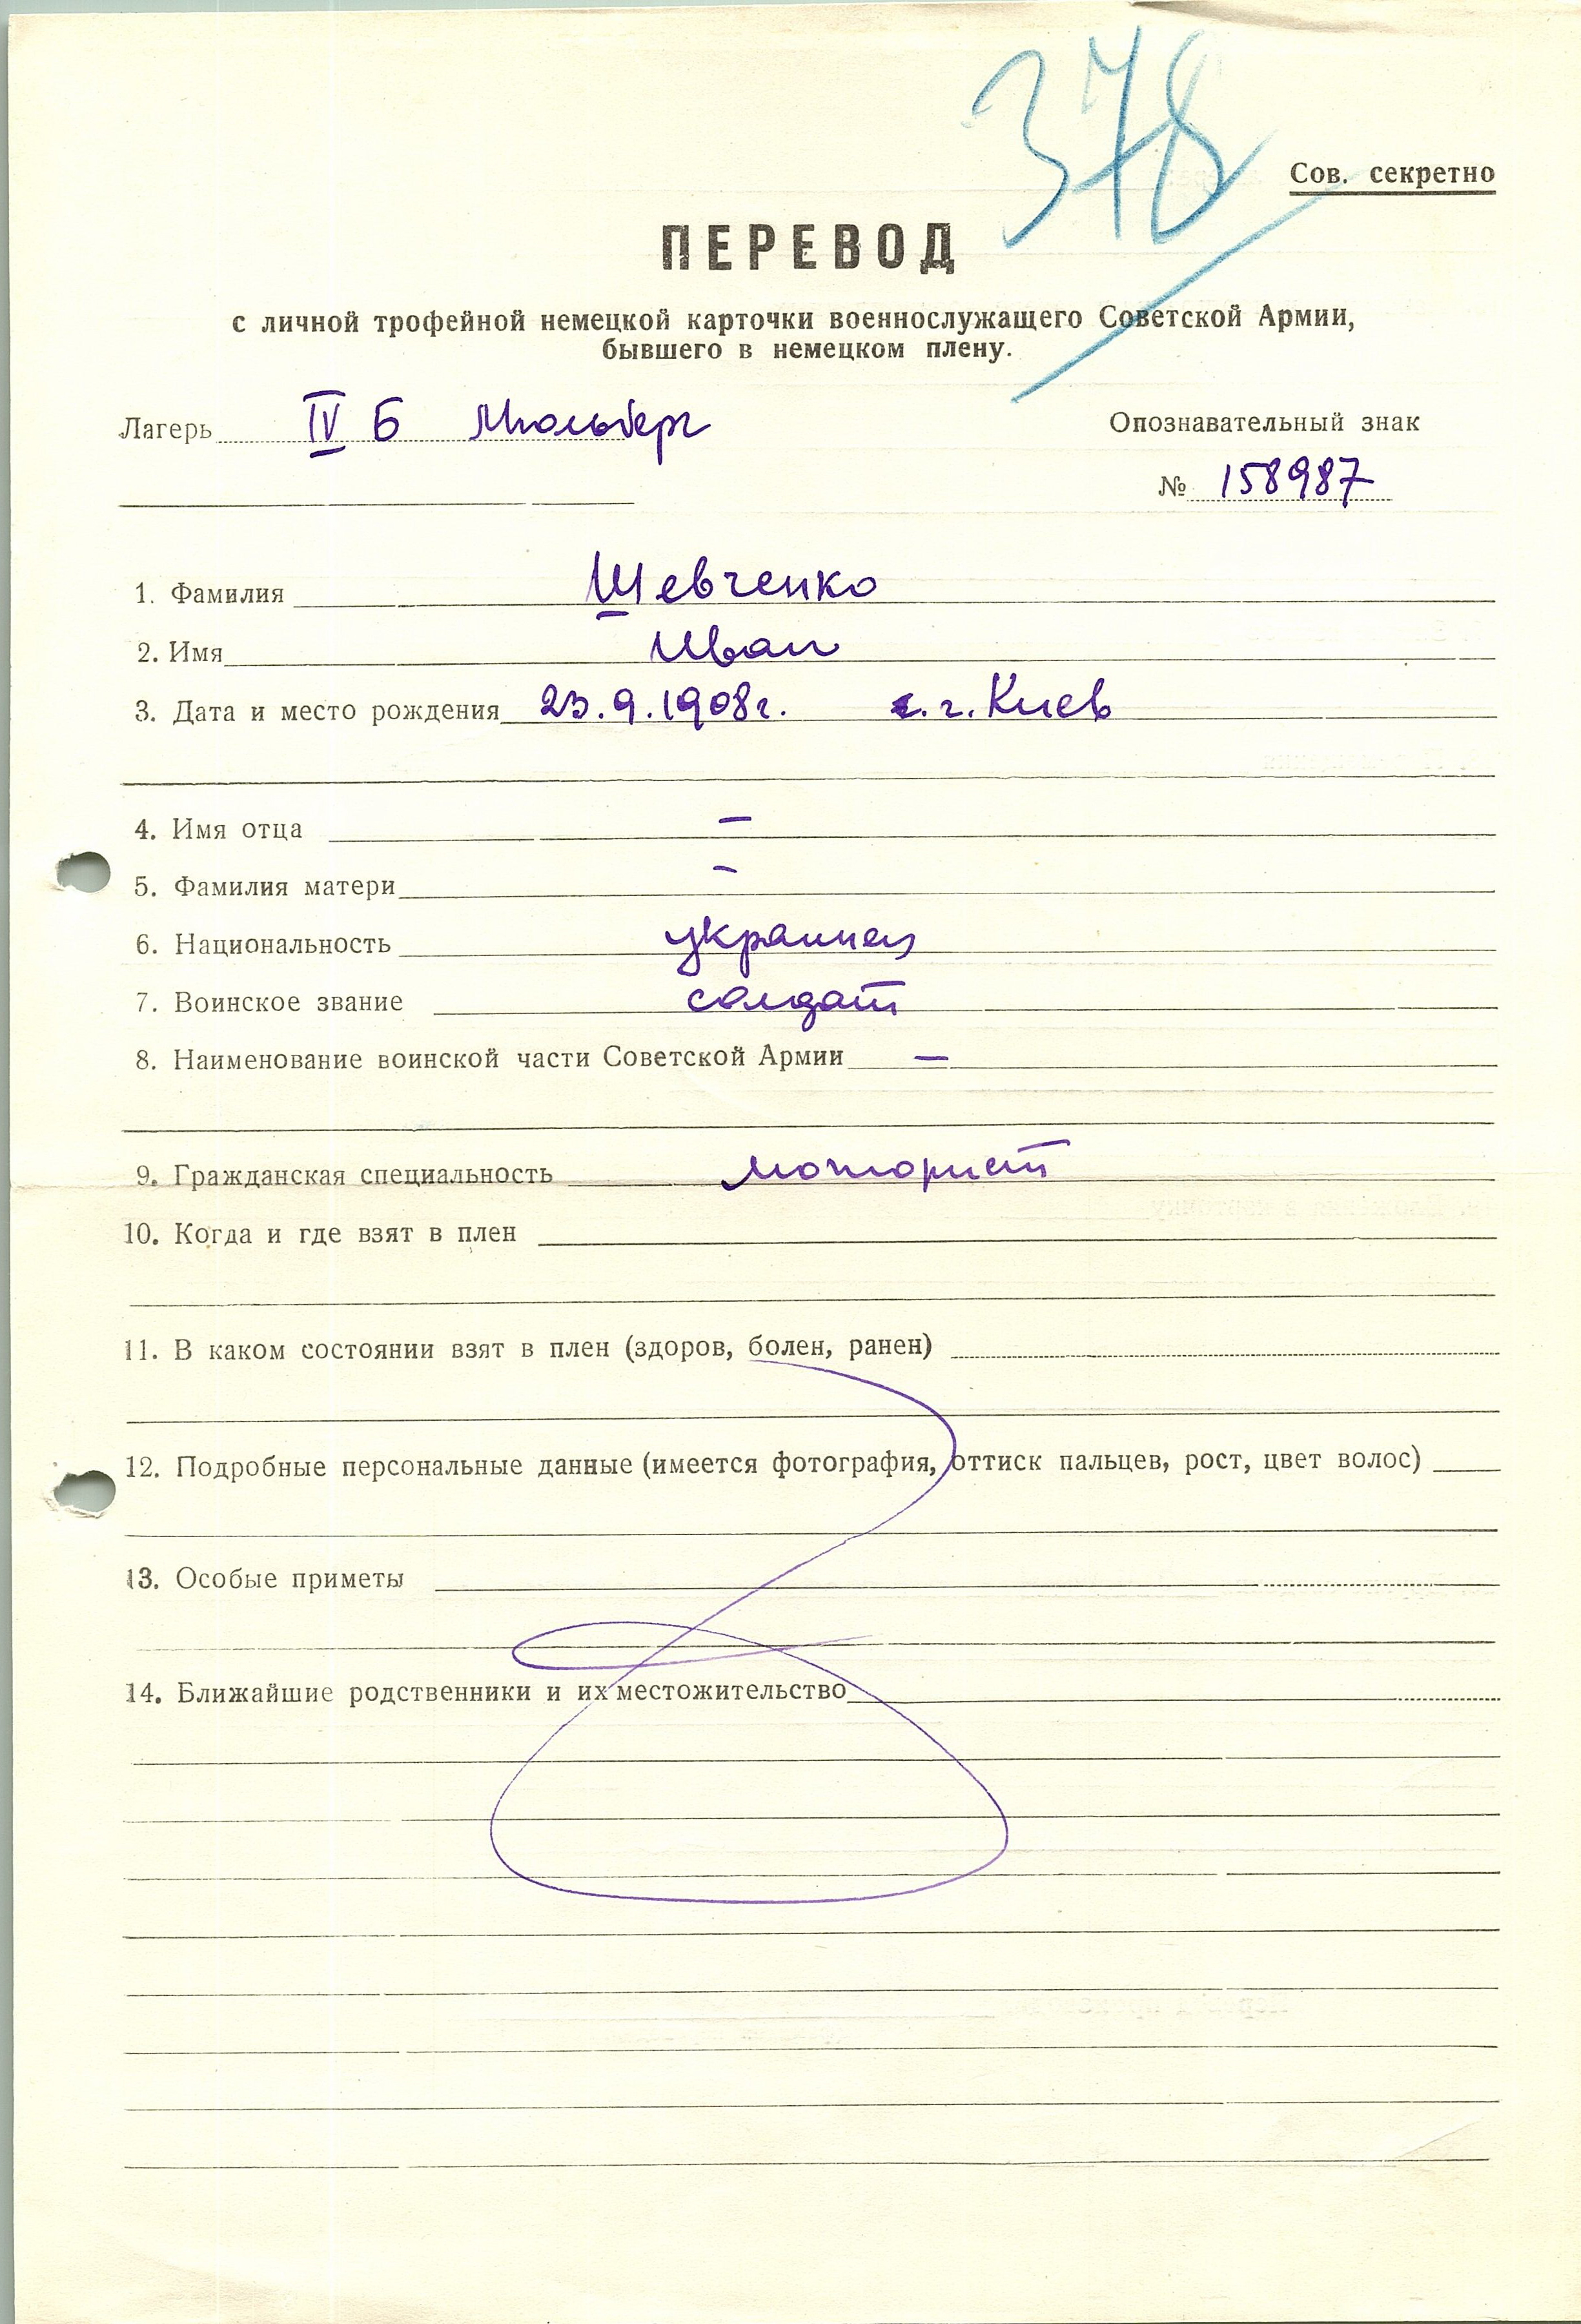 378
Сов. секретно
ПЕРЕВОД
с личной трофейной немецкой карточки военнослужащего Советской Армии,
бывшего в немецком плену.
Лагерь IV Б Мюльберг
Опознавательный знак
№ 158987
1. Фамилия Шевченко
2. Имя Иван
3. Дата и место рождения 23.9.1908г. г. Киев
4. Имя отца –
5. Фамилия матери –
6. Национальность украинец
7. Воинское звание солдат
8. Наименование воинской части Советской Армии –
9. Гражданская специальность моторист
10. Когда и где взят в плен
11. В каком состоянии взят в плен (здоров, болен, ранен)
12. Подробные персональные данные (имеется фотография, оттиск пальцев, рост, цвет волос)
13. Особые приметы
14. Ближайшие родственники и их местожительство